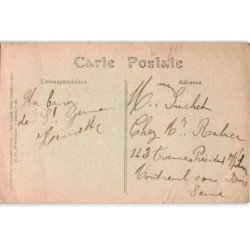 Carte Postale
Correspondance
Adresse
Un baiser
de St Germain
Henriette
Mme Suchet
Chez Mr
143 Avenue Président
Montreuil sous Bois
Seine